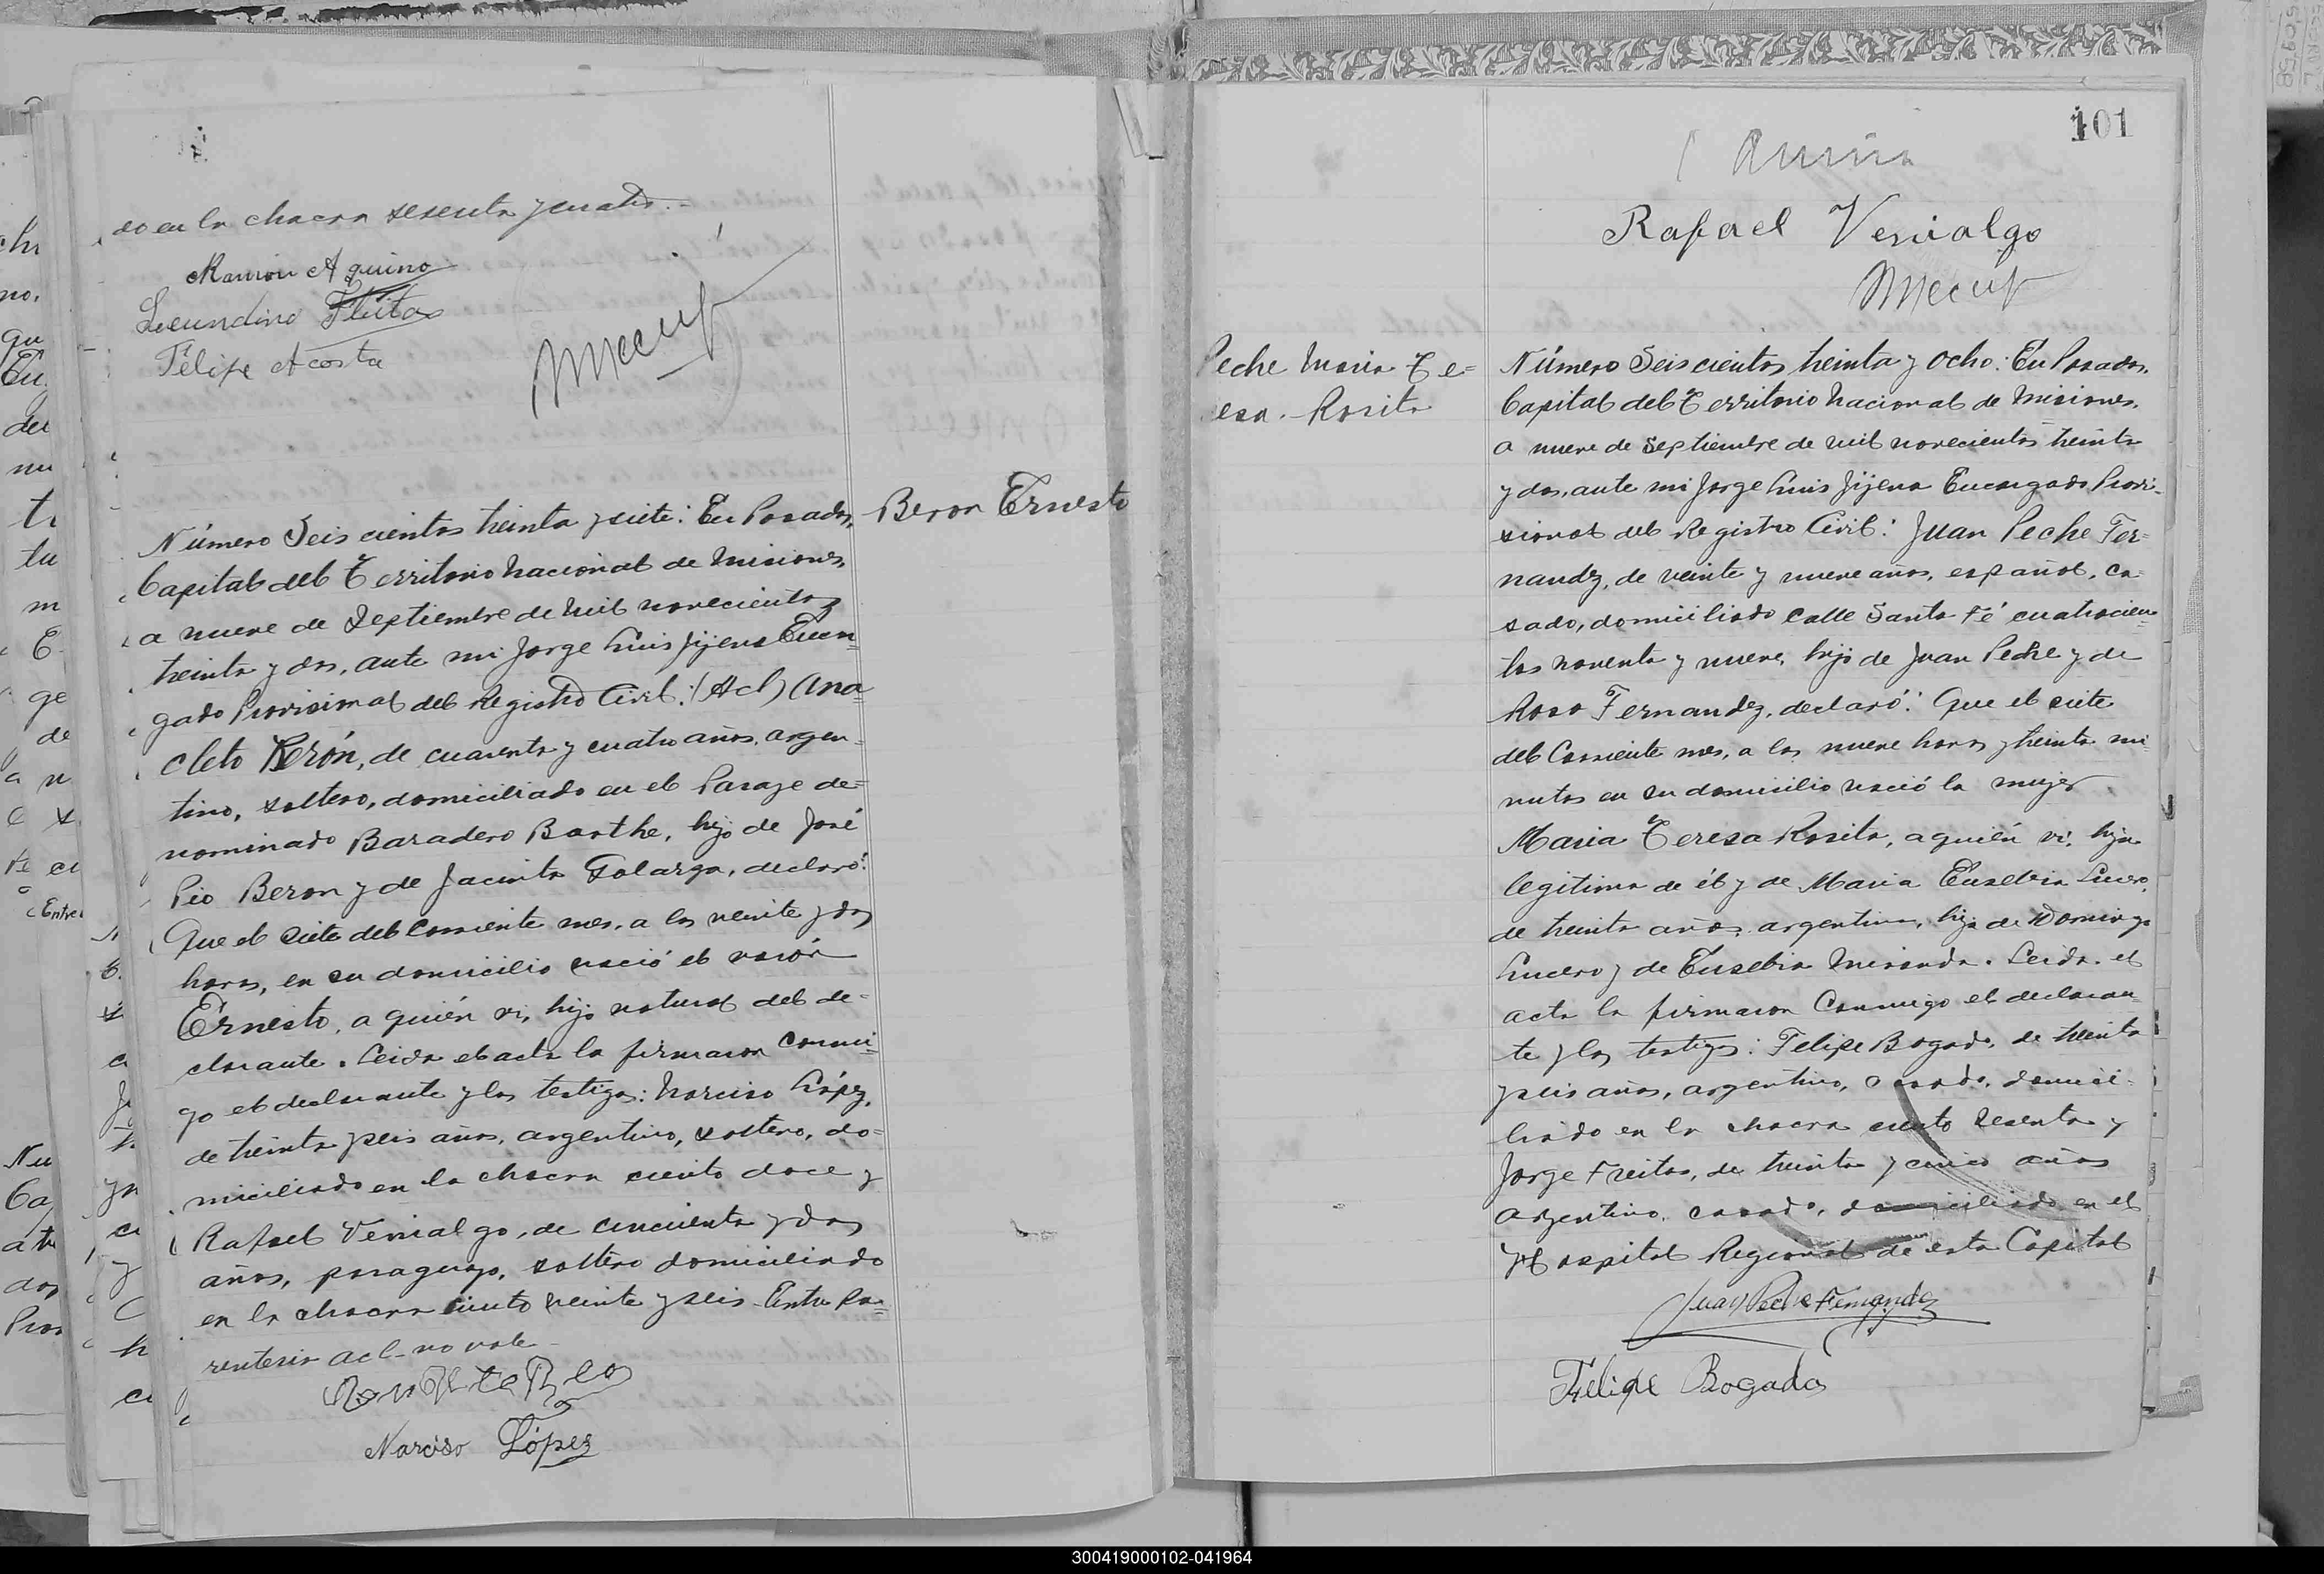 do en la chacra sesenta y cuatro.-
Ramón Aquino
Secundino Fleitas
Felipe Acosta
Número Seiscientos treinta y siete: En Posadas,
Capital del Territorio Nacional de Misiones,
a nueve de Septiembre de mil novecientos
treinta y dos, ante mi Jorge Luis Jijena Encar=
gado Provisional del Registro Civil: (Acl) Ana=
cleto Berón, de cuarenta y cuatro años, argen=
tino, soltero, domiciliado en el Paraje de=
nominado Baradero Barthe, hijo de José
Pio Beron y de Jacinta Galarza, declaró:
Que el siete del corriente mes, a las veinte y dos
horas, en su domicilio nació el varón
Ernesto, a quién vi, hijo natural del de=
clarante. Leida el acta la firmaron conmi=
go el declarante y los testigos: Narciso López,
de treinta y seis años, argentino, soltero, do=
miciliado en la chacra ciento doce y
Rafael Venialgo, de cincuenta y dos
años, paraguayo, soltero domiciliado
en la chacra ciento veinte y seis - Entre Pa=
rentesis acl- no vale
Narciso López
Beron Ernesto
101
Rafael Venialgo
Peche Maria Te=
resa. Rosita
Número Seiscientos treinta y ocho: En Posadas,
Capital del Territorio Nacional de Misiones,
a nueve de Septiembre de mil novecientos treinta
y dos, ante mi Jorge Luis Jijena Encargado Provi=
sional del Registro Civil: Juan Peche Fer=
nandez, de veinte y nueve años, español, ca=
sado, domiciliado calle Santa Fé cuatrocien=
tos noventa y nueve, hijo de Juan Peche y de
Rosa Fernandez, declaró: Que el siete
del Corriente mes, a las nueve horas y treinta mi=
nutos en su domicilio nació la mujer
Maria Teresa Rosita, a quién vi, hija
legitima de él y de Maria Eusebia Lucero,
de treinta años, argentina, hija de Domingo
Lucero y de Eusebia Miranda. Leida el
acta la firmaron Conmigo el declaran=
te y los testigos: Felipe Bogado, de treinta
y seis años, argentino, casado, domici=
liado en la chacra ciento sesenta y
Jorge Freitas, de treinta y cinco años
argentino, casado, domiciliado en el
Hospital Regional de esta Capital
Juan Peche Fernandez
Felipe Bogado
300419000102-041964